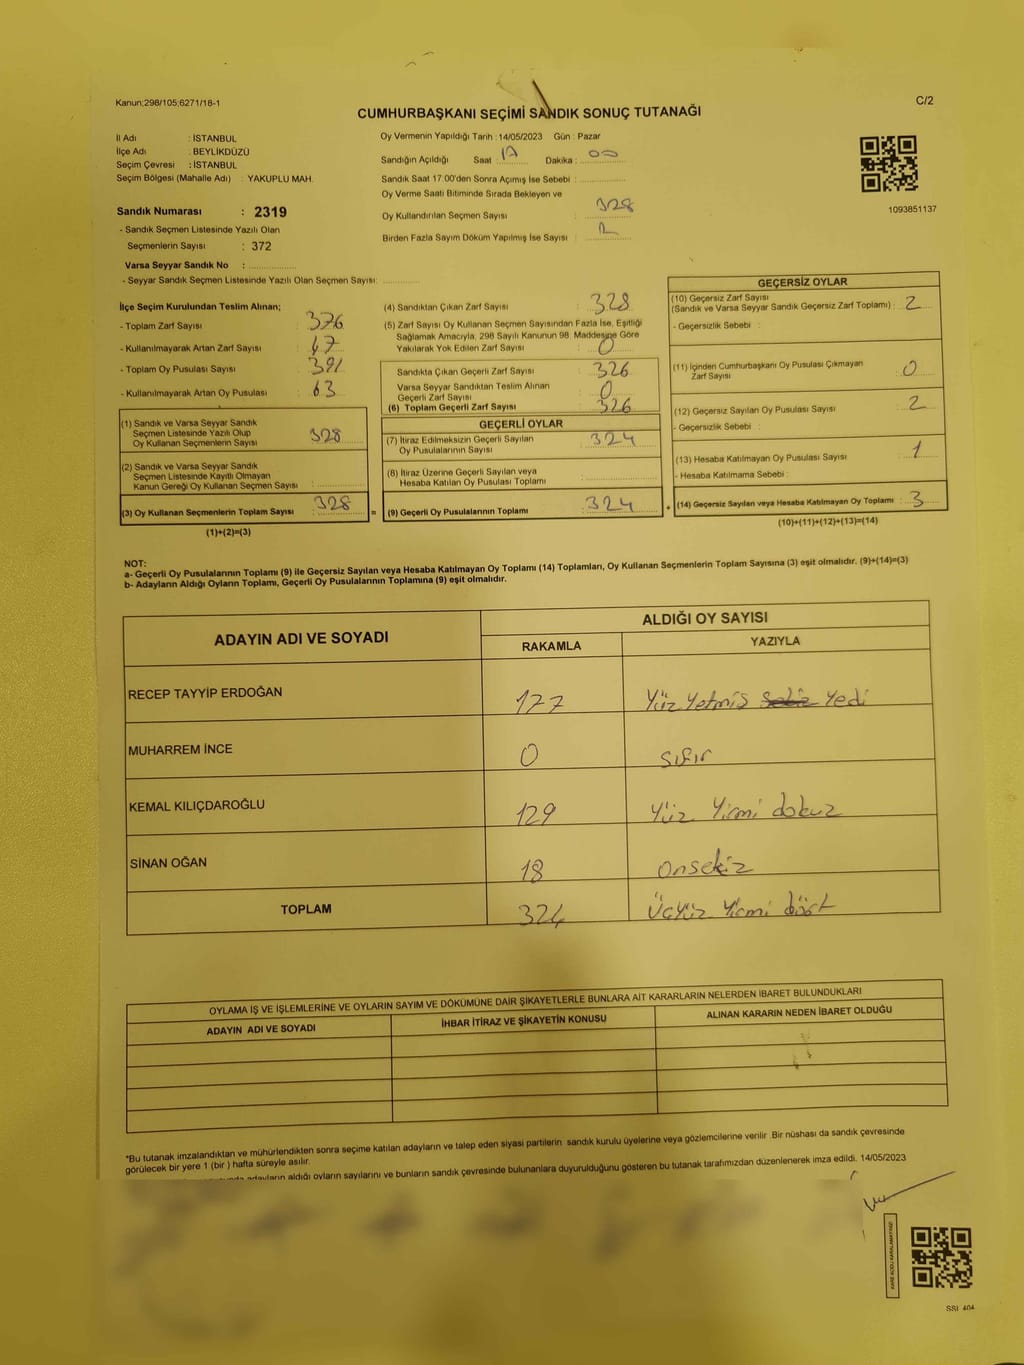 Kanun;298/105;6271/18-1
C/2
CUMHURBAŞKANI SEÇİMİ SANDIK SONUÇ TUTANAĞI
İl Adı : İSTANBUL
İlçe Adı : BEYLİKDÜZÜ
Seçim Çevresi : İSTANBUL
Seçim Bölgesi (Mahalle Adı) : YAKUPLU MAH.
Sandık Numarası : 2319
- Sandık Seçmen Listesinde Yazılı Olan
Seçmenlerin Sayısı : 372
Varsa Seyyar Sandık No :
- Seyyar Sandık Seçmen Listesinde Yazılı Olan Seçmen Sayısı:
Oy Vermenin Yapıldığı Tarih : 14/05/2023 Gün : Pazar
Sandığın Açıldığı Saat : Dakika : 00
Sandık Saat 17:00'den Sonra Açımış İse Sebebi :
Oy Verme Saati Bitiminde Sırada Bekleyen ve
Oy Kullandırılan Seçmen Sayısı : 328
Birden Fazla Sayım Döküm Yapılmış İse Sayısı :
1093851137
İlçe Seçim Kurulundan Teslim Alınan;
- Toplam Zarf Sayısı : 376
- Kullanılmayarak Artan Zarf Sayısı : 47
- Toplam Oy Pusulası Sayısı : 391
- Kullanılmayarak Artan Oy Pusulası : 63
(1) Sandık ve Varsa Seyyar Sandık
Seçmen Listesinde Yazılı Olup
Oy Kullanan Seçmenlerin Sayısı : 328
(2) Sandık ve Varsa Seyyar Sandık
Seçmen Listesinde Kayıtlı Olmayan
Kanun Gereği Oy Kullanan Seçmen Sayısı :
(3) Oy Kullanan Seçmenlerin Toplam Sayısı : 328
(1)+(2)=(3)
=
(4) Sandıktan Çıkan Zarf Sayısı : 328
(5) Zarf Sayısı Oy Kullanan Seçmen Sayısından Fazla İse, Eşitliği
Sağlamak Amacıyla, 298 Sayılı Kanunun 98. Maddesine Göre
Yakılarak Yok Edilen Zarf Sayısı : 0
Sandıkta Çıkan Geçerli Zarf Sayısı : 326
Varsa Seyyar Sandıktan Teslim Alınan
Geçerli Zarf Sayısı : 0
(6) Toplam Geçerli Zarf Sayısı : 326
GEÇERLİ OYLAR
(7) İtiraz Edilmeksizin Geçerli Sayılan
Oy Pusulalarının Sayısı : 324
(8) İtiraz Üzerine Geçerli Sayılan veya
Hesaba Katılan Oy Pusulası Toplamı :
(9) Geçerli Oy Pusulalarının Toplamı : 324
+
GEÇERSİZ OYLAR
(10) Geçersiz Zarf Sayısı
(Sandık ve Varsa Seyyar Sandık Geçersiz Zarf Toplamı) : 2
- Geçersizlik Sebebi :
(11) İçinden Cumhurbaşkanı Oy Pusulası Çıkmayan
Zarf Sayısı : 0
(12) Geçersiz Sayılan Oy Pusulası Sayısı : 2
- Geçersizlik Sebebi :
(13) Hesaba Katılmayan Oy Pusulası Sayısı : 1
- Hesaba Katılmama Sebebi :
(14) Geçersiz Sayılan veya Hesaba Katılmayan Oy Toplamı : 3
(10)+(11)+(12)+(13)=(14)
NOT:
a- Geçerli Oy Pusulalarının Toplamı (9) ile Geçersiz Sayılan veya Hesaba Katılmayan Oy Toplamı (14) Toplamları, Oy Kullanan Seçmenlerin Toplam Sayısına (3) eşit olmalıdır. (9)+(14)=(3)
b- Adayların Aldığı Oyların Toplamı, Geçerli Oy Pusulalarının Toplamına (9) eşit olmalıdır.
ADAYIN ADI VE SOYADI
ALDIĞI OY SAYISI
RAKAMLA YAZIYLA
RECEP TAYYİP ERDOĞAN 177 Yüz Yetmiş Yedi
MUHARREM İNCE 0 sıfır
KEMAL KILIÇDAROĞLU 129 Yüz Yirmi dokuz
SİNAN OĞAN 18 Onsekiz
TOPLAM 324 Üçyüz Yirmi dört
OYLAMA İŞ VE İŞLEMLERİNE VE OYLARIN SAYIM VE DÖKÜMÜNE DAİR ŞİKAYETLERLE BUNLARA AİT KARARLARIN NELERDEN İBARET BULUNDUKLARI
ADAYIN ADI VE SOYADI İHBAR İTİRAZ VE ŞİKAYETİN KONUSU ALINAN KARARIN NEDEN İBARET OLDUĞU
*Bu tutanak imzalandıktan ve mühürlendikten sonra seçime katılan adayların ve talep eden siyasi partilerin sandık kurulu üyelerine veya gözlemcilerine verilir Bir nüshası da sandık çevresinde
görülecek bir yere 1 (bir ) hafta süreyle asılır.
adayların aldığı oyların sayılarını ve bunların sandık çevresinde bulunanlara duyurulduğunu gösteren bu tutanak tarafımızdan düzenlenerek imza edildi. 14/05/2023
KARE KODU KARALAMAYINIZ!
SSI_404